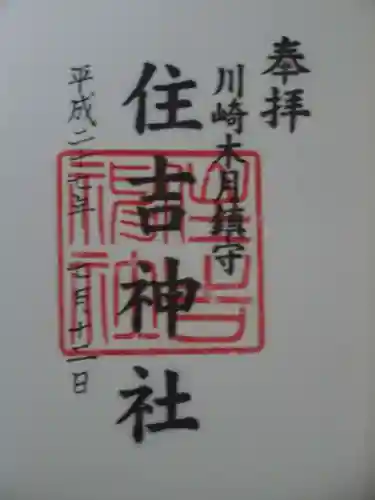 奉拝
川崎木月鎮守
住吉神社
平成二十七年 七月十二日
住吉神社